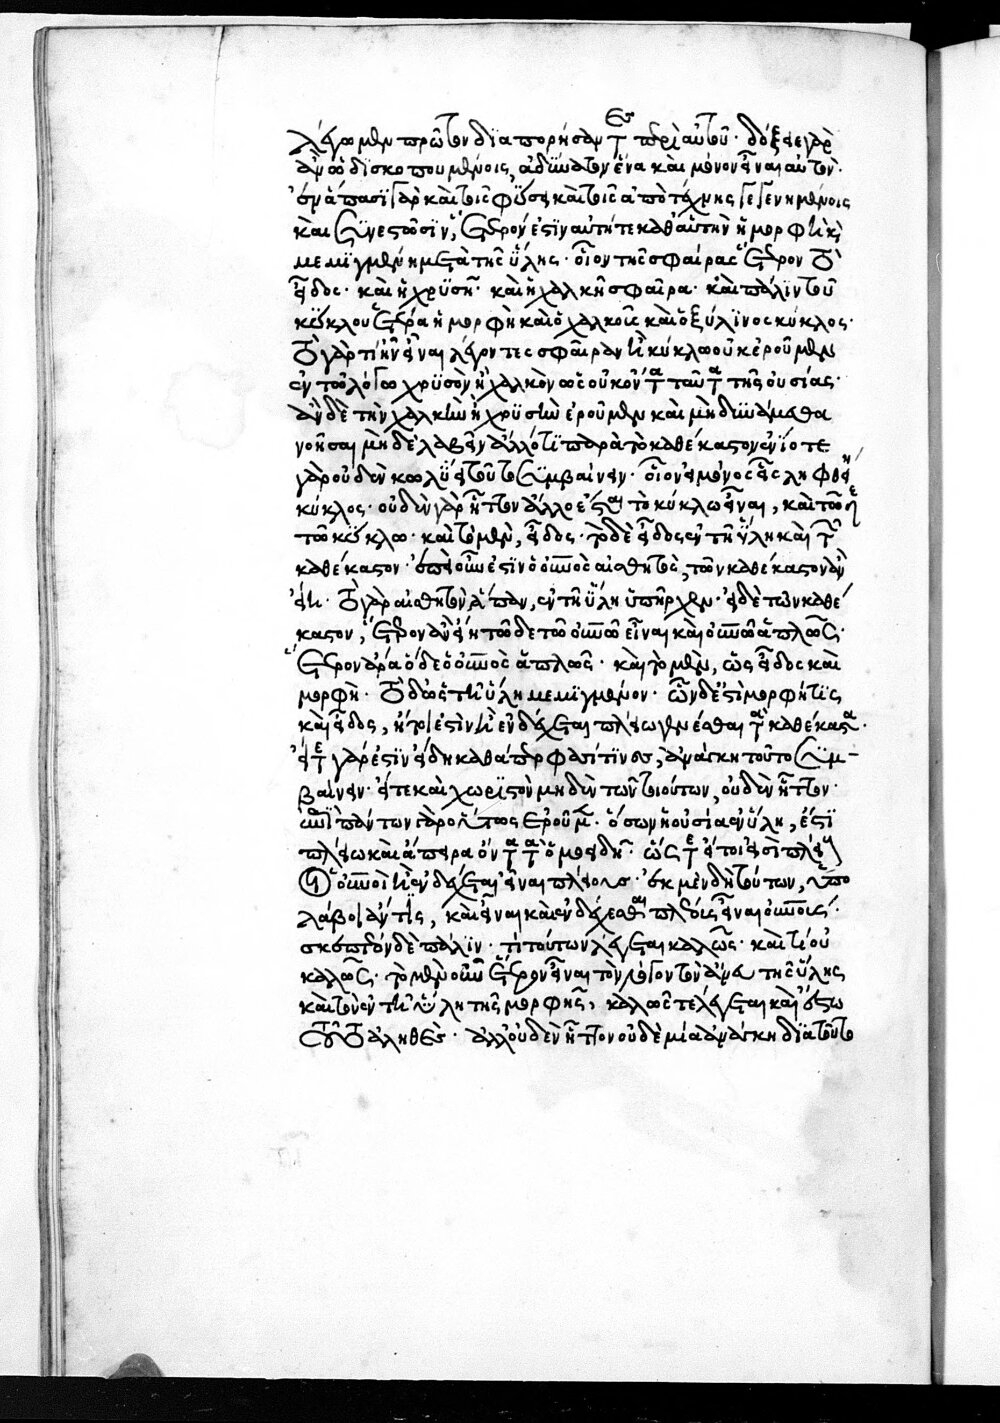 λέγωμεν πρῶτον διαπορήσαντες περὶ αὐτοῦ. δόξειε γὰρ
ἂν ὧδε σκοπουμένοις, ἀδύνατον ἕνα καὶ μόνον εἶναι αὐτόν.
ἐν ἅπασι γὰρ καὶ τοῖς φύσει καὶ τοῖς ἀπὸ τέχνης γεγενημένοις
καὶ συνεστῶσιν, ἕτερόν ἐστιν αὐτή τε καθ' αὑτὴν ἡ μορφὴ καὶ
μεμιγμένη μετὰ τῆς ὕλης. οἷον τῆς σφαίρας ἕτερον τὸ
εἶδος. καὶ ἡ χρυσῆ καὶ ἡ χαλκῆ σφαῖρα. καὶ πάλιν τοῦ
κύκλου ἑτέρα ἡ μορφὴ καὶ ὁ χαλκοῦς καὶ ὁ ξύλινος κύκλος.
τὸ γὰρ τί ἦν εἶναι λέγοντες σφαίραν ἢ κύκλω οὐκ ἐροῦμεν
ἐν τῶ λόγω χρυσὸν ἢ χαλκὸν ὡς οὐκ ὄντα ταῦτα τῆς οὐσίας.
ἂν δὲ τὴν χαλκῆν ἢ χρυσῆν ἐροῦμεν καὶ μὴ δυνάμεθα
νοῆσαι μὴ δὲ λαβεῖν ἄλλό τι παρὰ τὸ καθέκαστον ἐνίοτε
γὰρ οὐδὲν κωλύει τοῦτο συμβαίνειν. οἷον εἰ μόνος εἷς ληφθείη
κύκλος. οὐδὲν γὰρ ἧττον ἄλλο ἔσται τὸ κύκλω εἶναι, καὶ τῶδε
τῶ κύκλω. καὶ τὸ μὲν, εἶδος. τὸ δὲ εἶδος ἐν τῆ ὕλη καὶ τῶν
καθέκαστον. ἐπεὶ οὖν ἐστὶν ὁ οὐρανὸς αἰσθητὸς, τῶν καθέκαστον ἂν
εἴη. τὸ γὰρ αἰσθητὸν ἅπαν, ἐν τῆ ὕλη ὑπῆρχεν. εἰ δὲ τῶν καθέ
καστον, ἕτερον ἂν εἴη τῶδε τῶ οὐρανῶ εἶναι καὶ οὐρανῶ ἁπλῶς.
ἕτερον ἄρα ὅδε ὁ οὐρανὸς ἁπλῶς. καὶ τὸ μὲν, ὡς εἶδος καὶ
μορφὴ. τὸ δ' ὡς τῆ ὕλη μεμιγμένον. ὧν δέ ἐστὶ μορφή τις
καὶ εἶδος, ἤτοι ἐστὶν ἢ ἐνδέχεται πλείω γενέσθαι τὰ καθέκαστα.
εἴτε γάρ ἐστιν εἴδη καθάπερ φασί τινες, ἀνάγκη τοῦτο συμ-
βαίνειν. εἴτε καὶ χωριστὸν μηδὲν τῶν τοιούτων, οὐδὲν ἧττον.
ἐπὶ πάντων γὰρ οὕτως ἐροῦμεν. ὅσων ἡ οὐσία ἐν ὕλη, ἐστὶ
πλείω καὶ ἄπειρα ὄντα τὰ ὁμοειδῆ. ὥστε ἤτοι εἰσὶ πλείους
οὐρανοὶ ἢ ἐνδέχεται εἶναι πλείους. ἐκ μὲν δὴ τούτων, ὑπο
λάβοι ἄν τις, καὶ εἶναι καὶ ἐνδέχεσθαι πλείους εἶναι οὐρανούς.
σκεπτέον δὲ πάλιν. τί τούτων λέγεται καλῶς. καὶ τί οὐ
καλῶς. τὸ μὲν οὖν ἕτερον εἶναι τὸν λόγον τὸν ἄνευ τῆς ὕλης
καὶ τὸν ἐν τῆ ὕλη τῆς μορφῆς, καλῶς τε λέγεται καὶ ἔστω
τοῦτο ἀληθὲς. ἀλλ' οὐδὲν ἧττον οὐδὲ μία ἀνάγκη διὰ τοῦτο